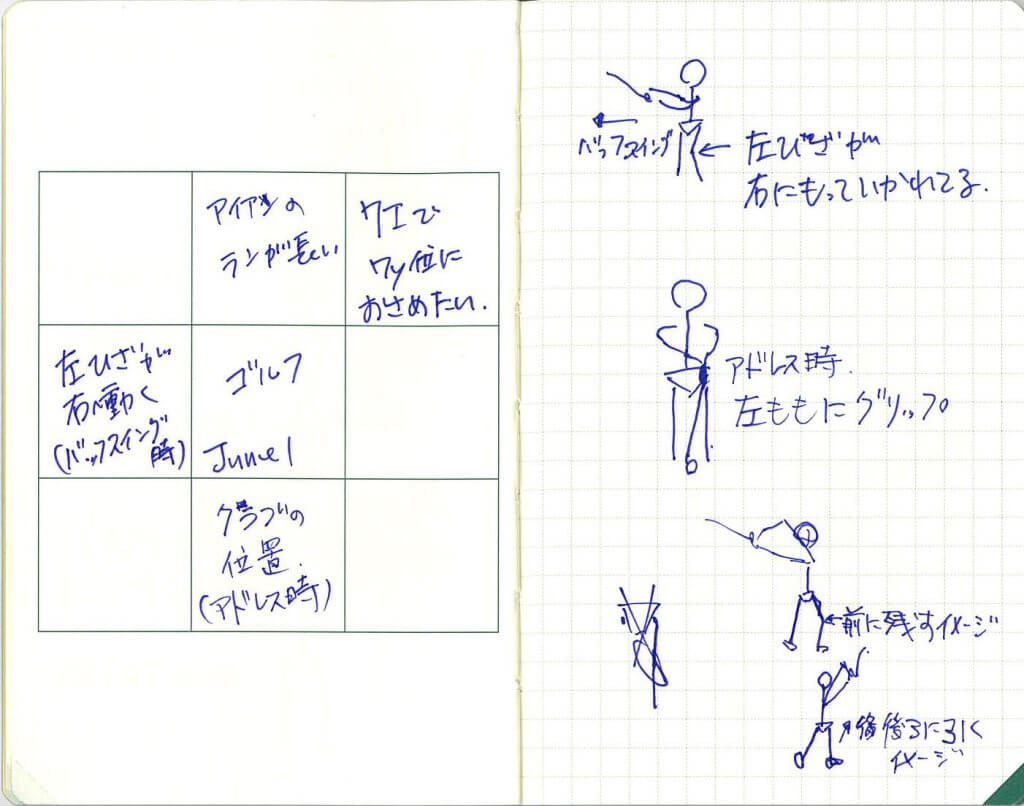 アイアンの
ランが長い
ウエで
7y位に
おさめたい.
左ひざが
右へ動く
(バックスイング
時)
ゴルフ
June 1
クラブの
位置.
(アドレス時)
バックスイング
← 左ひざが
右にもっていかれてる.
アドレス時.
左ももにグリップ。
←前に残すイメージ
後ろに引く
イメージ